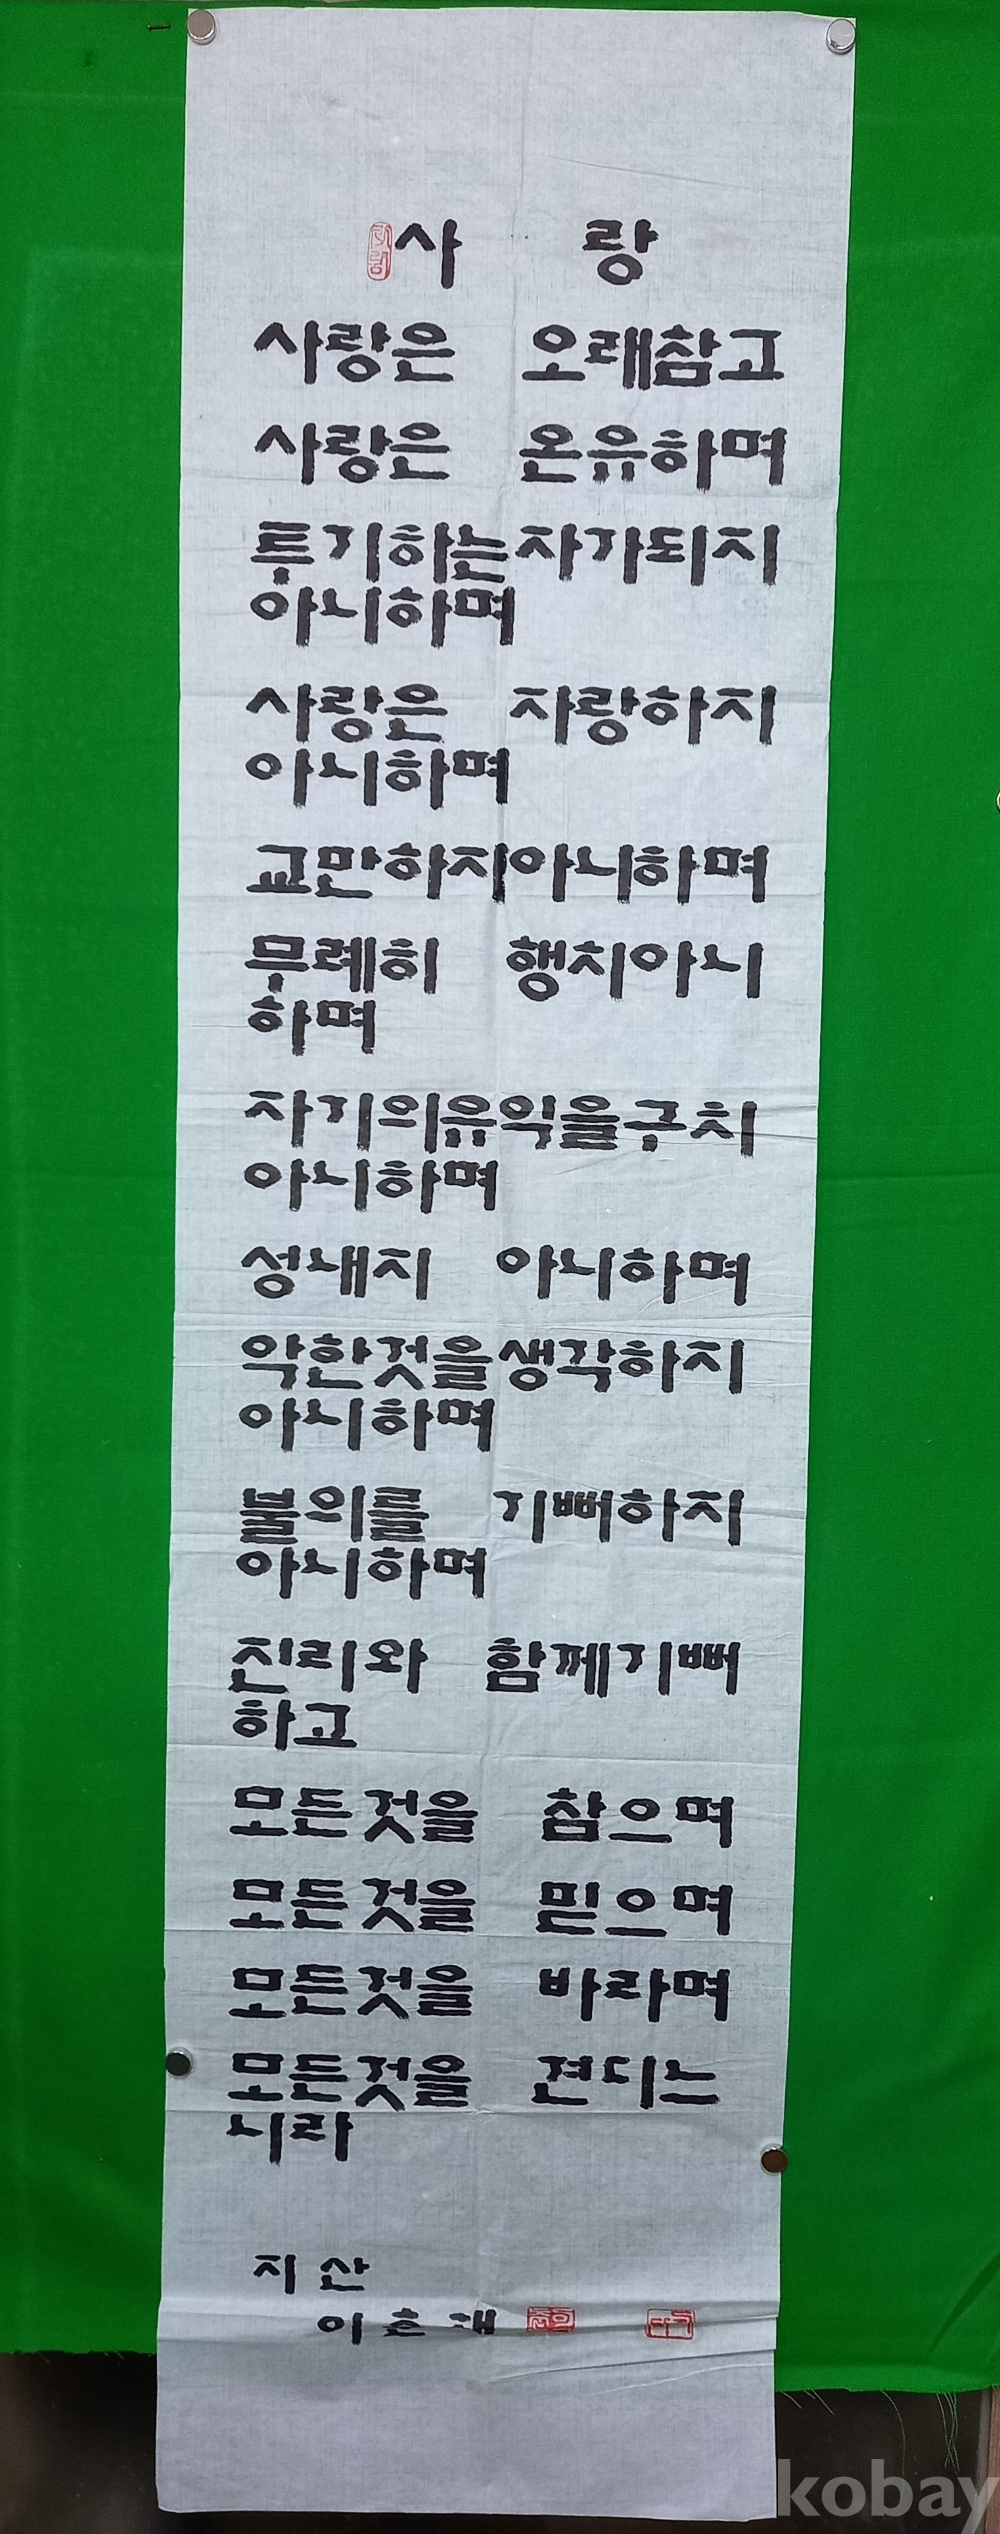 사 랑
사랑은 오래참고
사랑은 온유하며
투기하는자가되지
아니하며
사랑은 자랑하지
아니하며
교만하지아니하며
무례히 행치아니
하며
자기의유익을구치
아니하며
성내지 아니하며
악한것을생각하지
아니하며
불의를 기뻐하지
아니하며
진리와 함께기뻐
하고
모든것을 참으며
모든것을 믿으며
모든것을 바라며
모든것을 견디느
니라
지산
이
kobay